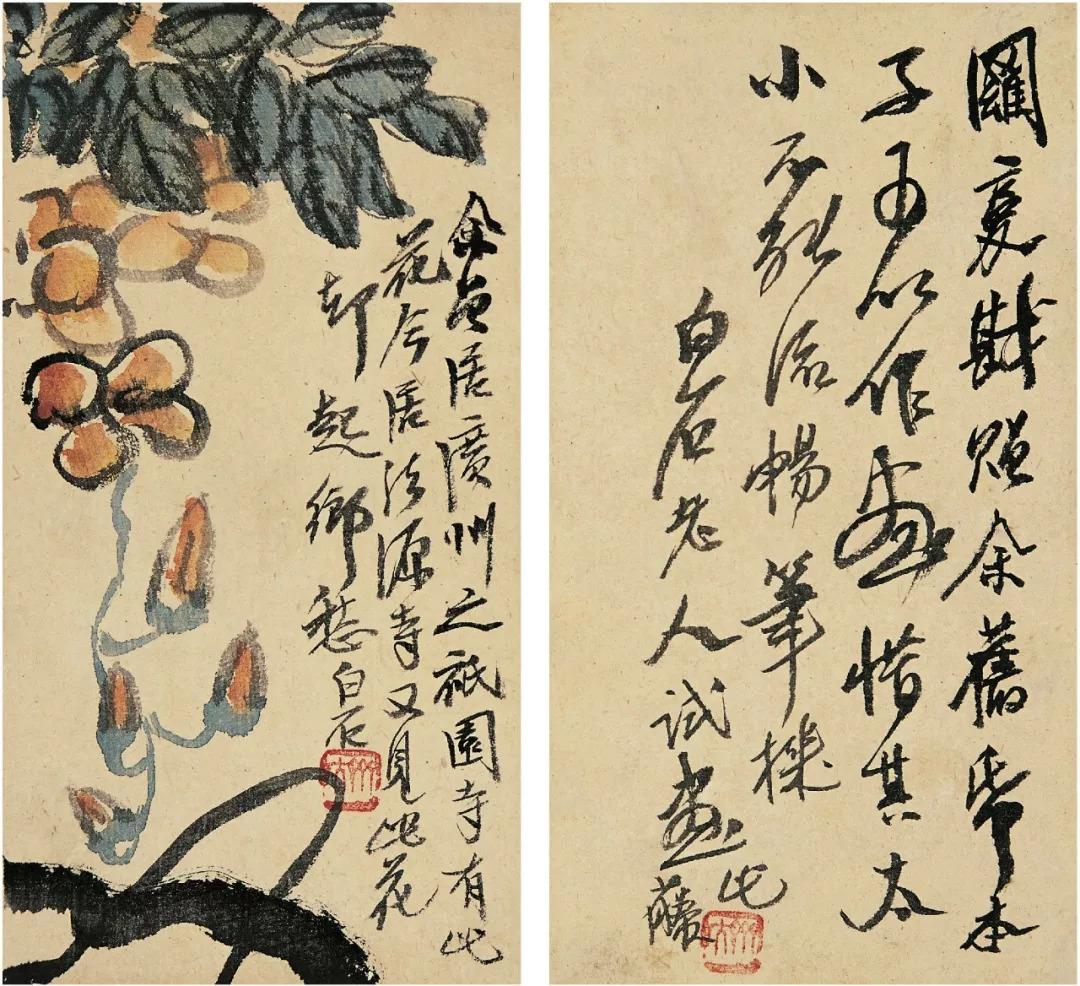 羅夏戡贈余舊帋本
子可以作畫惜其太
小不能流暢筆機此
白石老人試畫藤
木人
余曾居廣州之祇園寺有此
花今居法源寺又見此花
却起鄉愁白石
木人